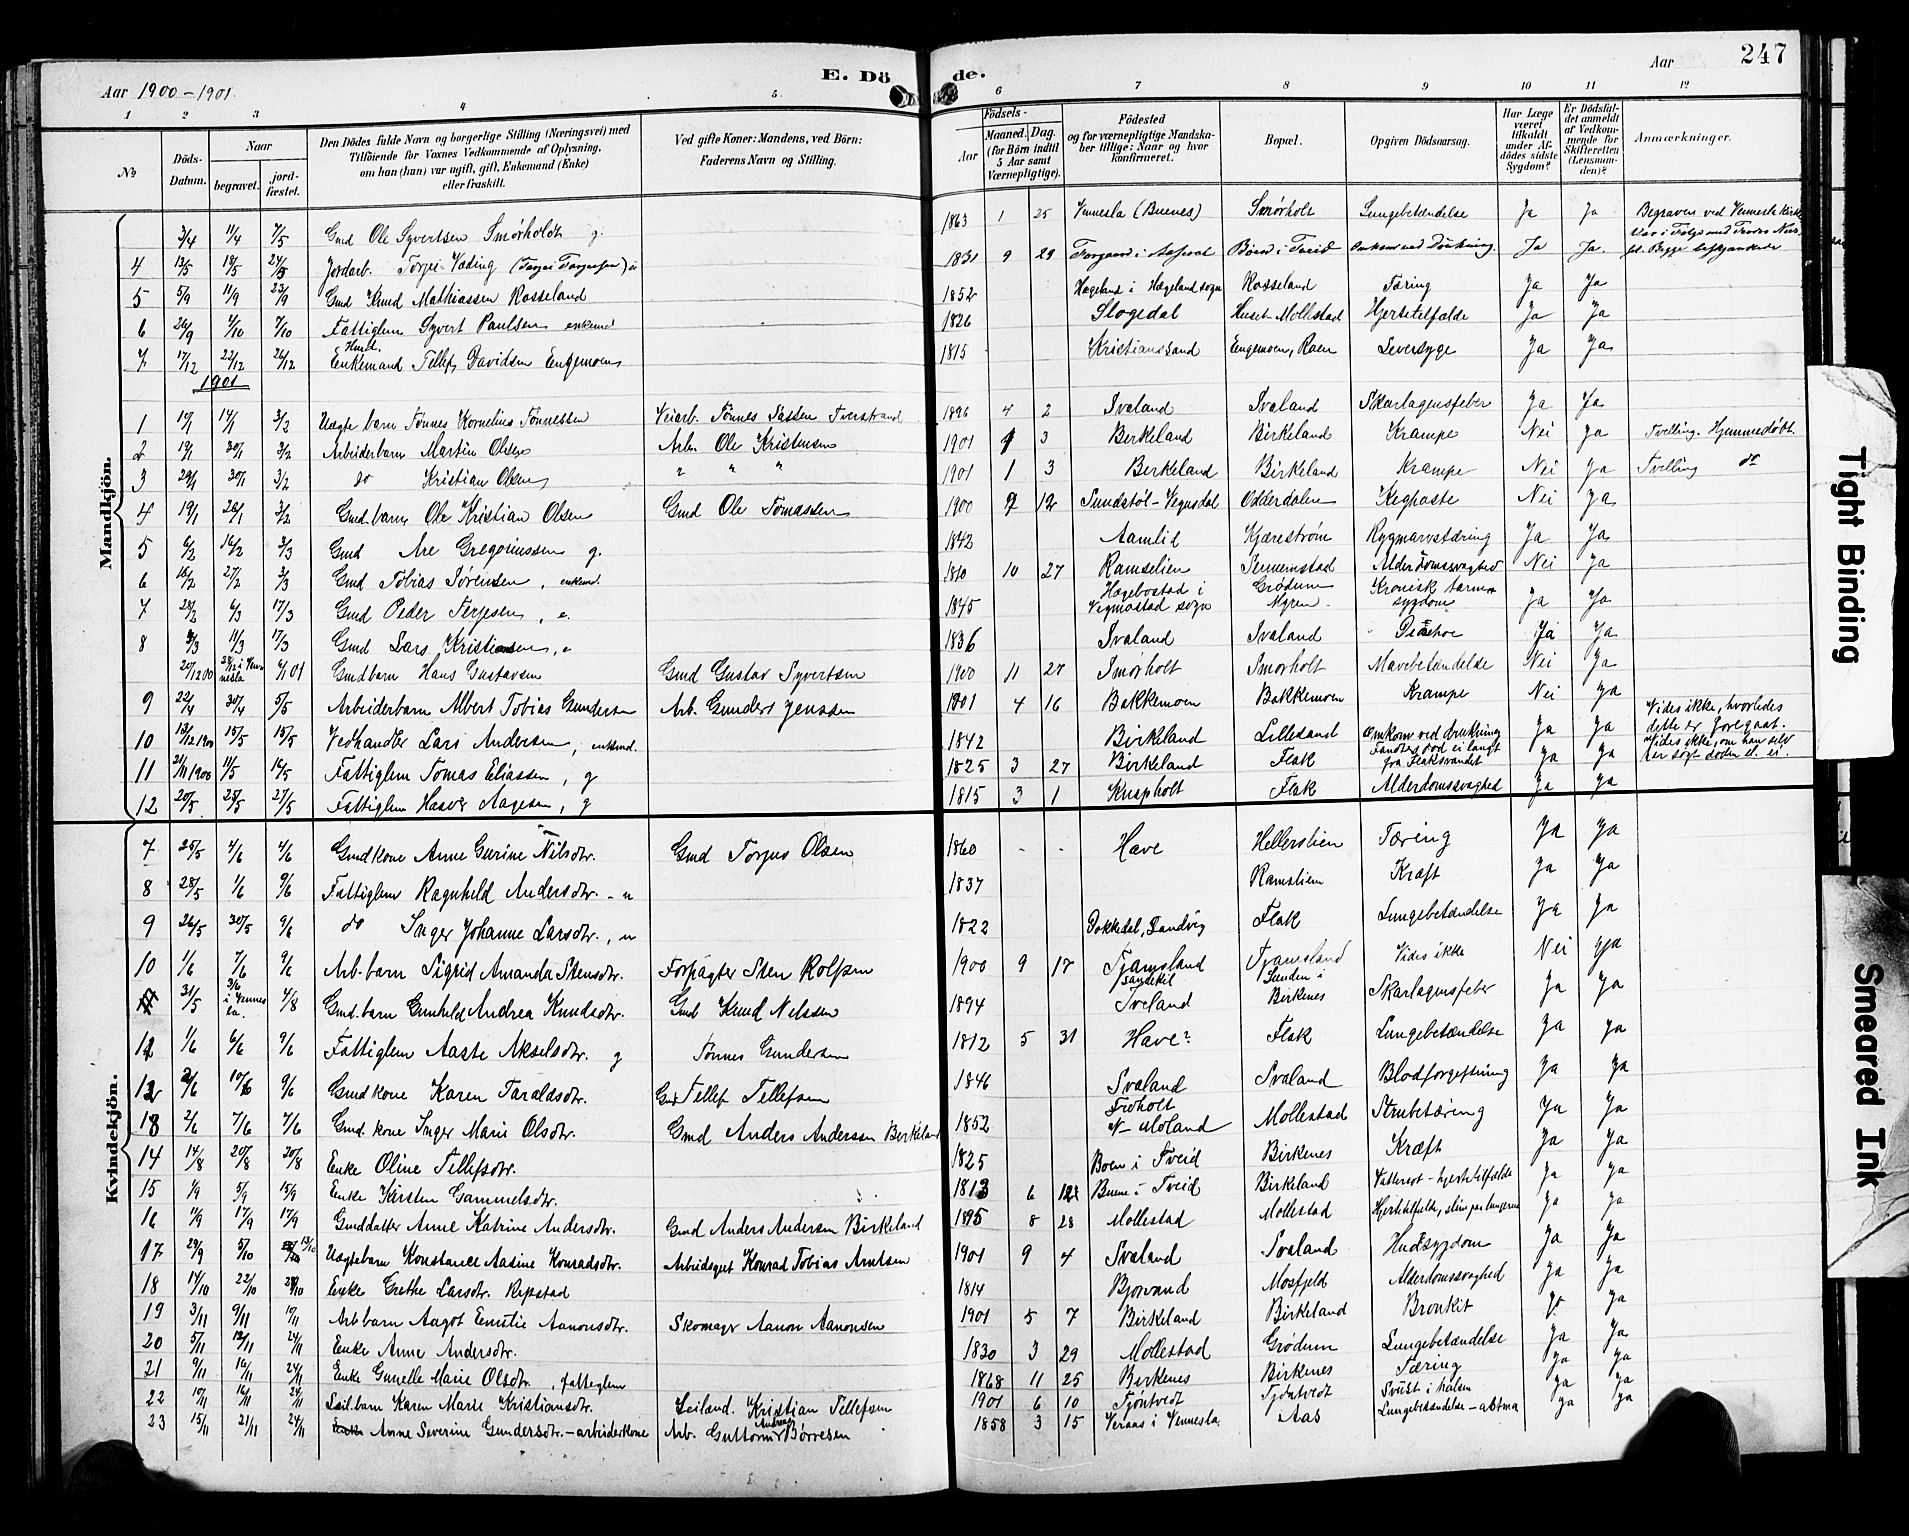 247
E. Döde.
Aar 1900-1901.
Aar
1 2 3 4 5 6 7 8 9 10 11 12
No
Döds-Datum.
Naar
begravet.
jord-fæstet.
Den Dödes fulde Navn og borgerlige Stilling (Næringsvei) med Tilföiende for Voxnes Vedkommende af Oplysning, om han (hun) var ugift, gift, Enkemand (Enke) eller fraskilt.
Ved gifte Koner: Mandens, ved Börn: Faderens Navn og Stilling.
Födsels-
Aar
Maaned. Dag.
(for Börn indtil 5 Aar samt Værnepligtige).
Födested og for værnepligtige Mandskaber tillige: Naar og hvor konfirmeret.
Bopæl.
Opgiven Dödsaarsag.
Har Læge været tilkaldt under Afdödes sidste Sygdom?
Er Dödsfaldet anmeldt af Vedkommende for Skifteretten (Lensmanden)?
Anmærkninger.
Mandkjön.
3/4 11/4 7/5 Gmd Ole Syvertsen Smørholdt g. 1863 1 25 Vennesla (Buenes) Smørholt Lungebetændelse Ja Ja Begraven ved Vennesla Kirke
4 13/5 18/5 24/5 Jordarb. Torjei Væding (Torjei Torjeisen) 1831 9 29 Boen i Tveid Omkom ved Drukning Ja Ja.
5 5/9 11/9 23/9 Gmd Knud Mathiassen Rosseland 1852 Hægeland i Hægeland sogn Rosseland Tæring Ja Ja
6 26/9 4/10 7/10 Fattiglem Syvert Paulsen enkemd 1826 Slogedal Huset Mollestad Hjertetilfælde Ja Ja
7 17/12 23/12 26/12 Enkemand Tellef Davidsen Engemoen 1815 Kristianssand Engemoen, Roen Leversyge Ja Ja
1901
1 10/1 14/1 3/2 Uægte barn Tønnes Kornelius Tønnessen Veiarb. Tønnes Tverstrand 1896 4 2 Svaland Svaland Skarlagensfeber Ja Ja
2 19/1 30/1 3/2 Arbeiderbarn Martin Olsen Arb. Ole Kristensen 1901 1 3 Berkeland Birkeland Krampe Nei Ja Tvilling. Hjemmedøbt.
3 29/1 30/1 3/2 do Kristian Olsen " " " 1901 1 3 Birkeland Birkeland Krampe Nei Ja Tvilling do
4 19/1 26/1 3/2 Gmd. barn Ole Kristian Olsen Gmd Ole Tomassen 1900 9 12 Sundstøl - Vegusdal Odderdalen Kighoste Nei Ja
5 6/2 16/2 3/3 Gmd Are Gregoriussen g. 1842 Aamlid Kjærestrøm Rygmarvstæring Ja Ja
6 16/2 27/2 3/3 Gmd Tobias Sørensen, enkemd. 1810 10 27 Ramselien Tennemstad Alderdomssvaghed Nei Ja
7 28/2 6/3 17/3 Gmd Peder Terjesen, e. 1845 Hægebostad i Vigmostad sogn Grødum Myren. Kronisk tarmsygdom Ja Ja
8 3/3 11/3 17/3 Gmd Lars Kristiansen, e 1836 Svaland Svaland Ja Ja
20/12 00 28/12 i Vennesla 6/1 01 Gmdbarn Hans Gustavsen Gmd Gustav Syvertsen 1900 11 27 Smørholt Smørholt Mavebetændelse Nei Ja
9 22/4 30/4 5/5 Arbeiderbarn Albert Tobias Gundersen Arb. Gunder Jensen 1901 4 16 Bakkemoen Bakkemoen Krampe Nei Ja
10 13/12 1900 15/5 15/5 Vedhandler Lars Andersen, enkemd. 1842 Birkeland Lillesand Omkom ved drukning Ja Ja Vides ikke, hvorledes dette er foregaat.
11 21/11 1900 11/5 14/5 Fattiglem Tomas Eliassen, g 1825 3 27 Birkeland Flak Fandtes død ei langt fra Flaksvandet Ja Ja Vides ikke, om han selv har søgt døden el. ei.
12 20/5 25/5 27/5 Fattiglem Haaver Aagesen, g 1815 3 1 Knapholt Flak Alderdomssvaghed Ja Ja
Kvindekjön.
7 25/5 4/6 4/6 Gmdkone Anne Gurine Nilsdtr. Gmd Torjus Olsen 1860 - - Have Hellerslien Tæring Ja Ja
8 28/5 1/6 9/6 Fattiglem Ragnhild Andersdtr. - u 1837 Ramslien Kræft Ja Ja
9 26/5 30/5 9/6 do Inger Johanne Larsdtr., u 1822 Dokkedal, Landvig Flak Lungebetændelse Ja Ja
10 1/6 7/6 9/6 Arb. barn Sigrid Amanda Stensdtr. Forpagter Sten Rolfsen 1900 9 17 Tjamsland Tjamsland Vides ikke Nei Ja
31/5 3/6 i Vennesla. 4/8 Gmd. barn Gunhild Andrea Knudsdtr. Gmd Knud Nilssen 1894 Tveland Sunden i Birkenes Skarlagensfeber Ja Ja
11 1/6 6/6 9/6 Fattiglem Aaste Akselsdtr. g Tønnes Gundersen 1812 5 31 Have? Flak Lungebetændelse Ja Ja
12 2/6 10/6 9/6 Gmdkone Karen Taraldsdtr. Gmd Tellef Tellefsen 1846 Svaland Svaland Blodforgiftning Ja Ja
13 2/6 7/6 7/6 Gmd. kone Inger Marie Olsdtr. Gmd Anders Andersen Birkeland 1852 Froholt N- Moland Mollestad Strubetæring Ja Ja
14 14/8 20/8 20/8 Enke Oline Tellefsdtr. 1825 Boen i Tveid Birkenes Kræft Ja Ja
15 1/9 5/9 15/9 Enke Kirsten Gammelsdtr. 1813 6 Buene i Tveid Birkeland Vattersot - hjertetilfælde Ja Ja
16 11/9 17/9 17/9 Gmddatter Anne Katrine Andersdtr. Gmd Anders Andersen Birkeland 1895 8 28 Mollestad Mollestad Hjertetilfælde, slim paa lungerne Ja Ja
17 29/9 5/10 13/10 Uægtebarn Konstance Aasine Konradsdtr. Arbeidsgut Konrad Tobias Arntsen 1901 9 4 Svaland Svaland Hudsygdom Ja Ja
18 14/10 22/10 28/10 Enke Grethe Larsdtr. Repstad 1814 Bjorvand Mosfjeld Alderdomssvaghed Ja Ja
19 3/11 9/11 10/11 Arb.barn Aagot Emilie Aanonsdtr. Skomager Aanon Aanonsen 1901 5 7 Birkeland Birkeland Bronkit Ja Ja
20 5/11 12/11 24/11 Enke Anne Andersdtr. 1830 3 29 Mollestad Grødum Lungebetændelse Ja Ja
21 9/11 16/11 24/11 Enke Gunelle Marie Olsdtr., fattiglem 1868 11 25 Birkenes Birkenes Tæring Ja Ja
22 10/11 16/11 24/11 Leil.barn Karen Marie Kristiansdtr. Leiland. Kristian Tellefsen 1901 6 10 Tjøntvedt Tjøntvedt Svulst i halsen Ja Ja
23 15/11 21/11 24/11 Anne Severine Gundersdtr. - arbeiderkone Arb. Guttorm Andreas Børresen 1858 3 15 Veraas i Vennesla Aas Lungebetændelse - astma Ja Ja
Tight Binding
Smeared Ink